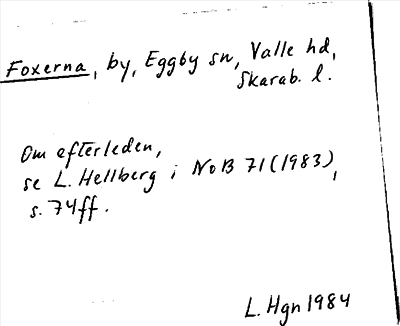 Foxerna, by, Eggby sn, Valle hd,
Skarab. l.
Om efterleden,
se L. Hellberg i NoB 71 (1983),
s. 74ff.
L. Hgn 1984